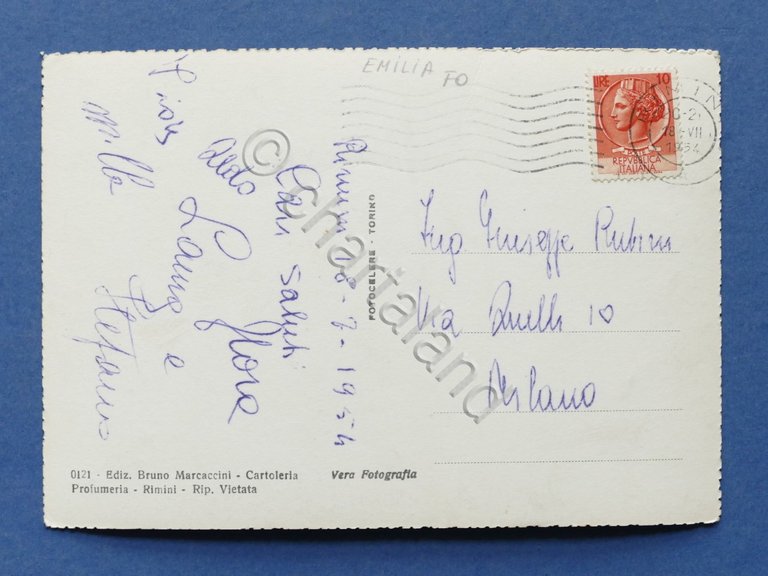 EMILIA FO
LIRE 10
POSTE
REPVBBLICA
ITALIANA
18 VII
1954
Rimini 18-7-1954
Cari saluti
Flora
Aldo
Laura e
Stefano
FOTOCELERE - TORINO
Ing Giuseppe Rubini
Via 10
Milano
0121 - Ediz. Bruno Marcaccini - Cartoleria
Profumeria - Rimini - Rip. Vietata
Vera Fotografia
© chartaland